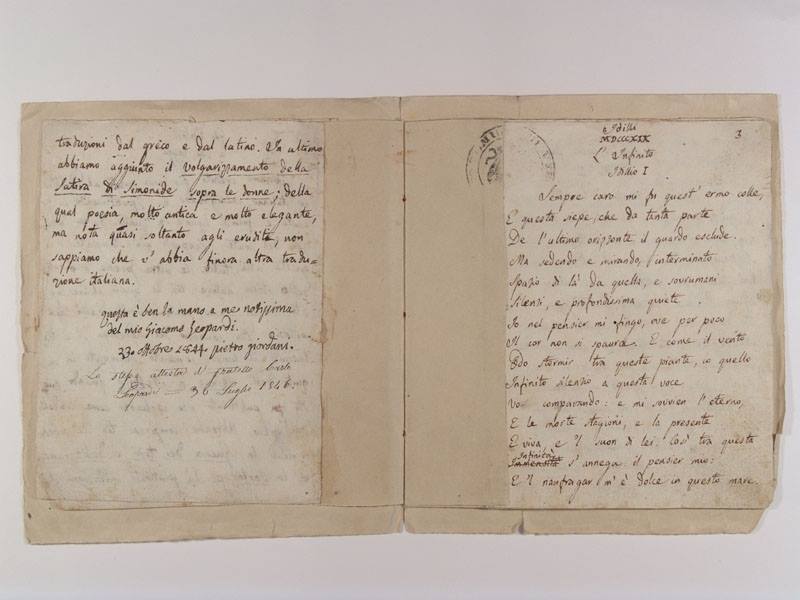 traduzioni dal greco e dal latino. In ultimo
abbiamo aggiunto il volgarizzamento della
Satira di Simonide sopra le donne; della
qual poesia, molto antica e molto elegante,
ma nota quasi soltanto agli eruditi, non
sappiamo che v'abbia finora altra tradu=
zione italiana.
questa è ben la mano a me notissima
del mio Giacomo Leopardi.
23. ottobre 1844. pietro giordani.
Lo stesso attesta il fratello Carlo
Leopardi = 30 Luglio 1846
3
Idilli
MDCCCXIX
L'Infinito
Idillio I
Sempre caro mi fu quest'ermo colle,
E questa siepe, che da tanta parte
De l'ultimo orizzonte il guardo esclude.
Ma sedendo e mirando, interminato
Spazio di là da quella, e sovrumani
Silenzi, e profondissima quiete
Io nel pensier mi fingo, ove per poco
Il cor non si spaura. E come il vento
Odo stormir tra queste piante, io quello
Infinito silenzio a questa voce
Vo comparando: e mi sovvien l'eterno,
E le morte stagioni, e la presente
E viva, e 'l suon di lei. Così tra questa
Infinità
Immensità s'annega il pensier mio:
E 'l naufragar m'è dolce in questo mare.